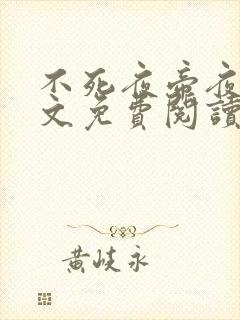 不死夜帝夜
文免費閱讀
黃岐永